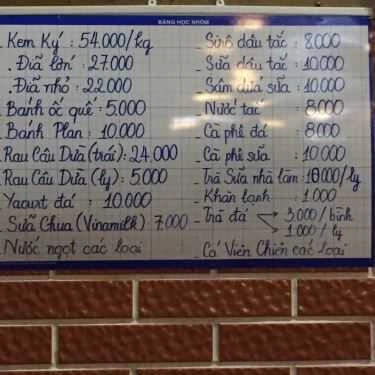 BẢNG HỌC NHÓM
- Kem Ký : 54.000/kg
. Đĩa lớn : 27.000
. Đĩa nhỏ : 22.000
- Bánh ốc quế : 5.000
- Bánh Plan : 10.000
- Rau Câu Dừa (trái) : 24.000
- Rau Câu Dừa (ly) : 5.000
- Yaourt đá : 10.000
- Sữa Chua (Vinamilk) 7.000
- Nước ngọt các loại
- Sirô dâu tắc : 8.000
- Sữa dâu tắc : 10.000
- Sâm dứa sữa : 10.000
- Nước tắc : 8.000
- Cà phê đá : 8.000
- Cà phê sữa : 10.000
- Trà Sữa nhà làm : 10.000/ly
- Khăn lạnh : 1.000
- Trà đá → 3.000/bình
→ 1.000/ly
- Cá Viên Chiên các loại